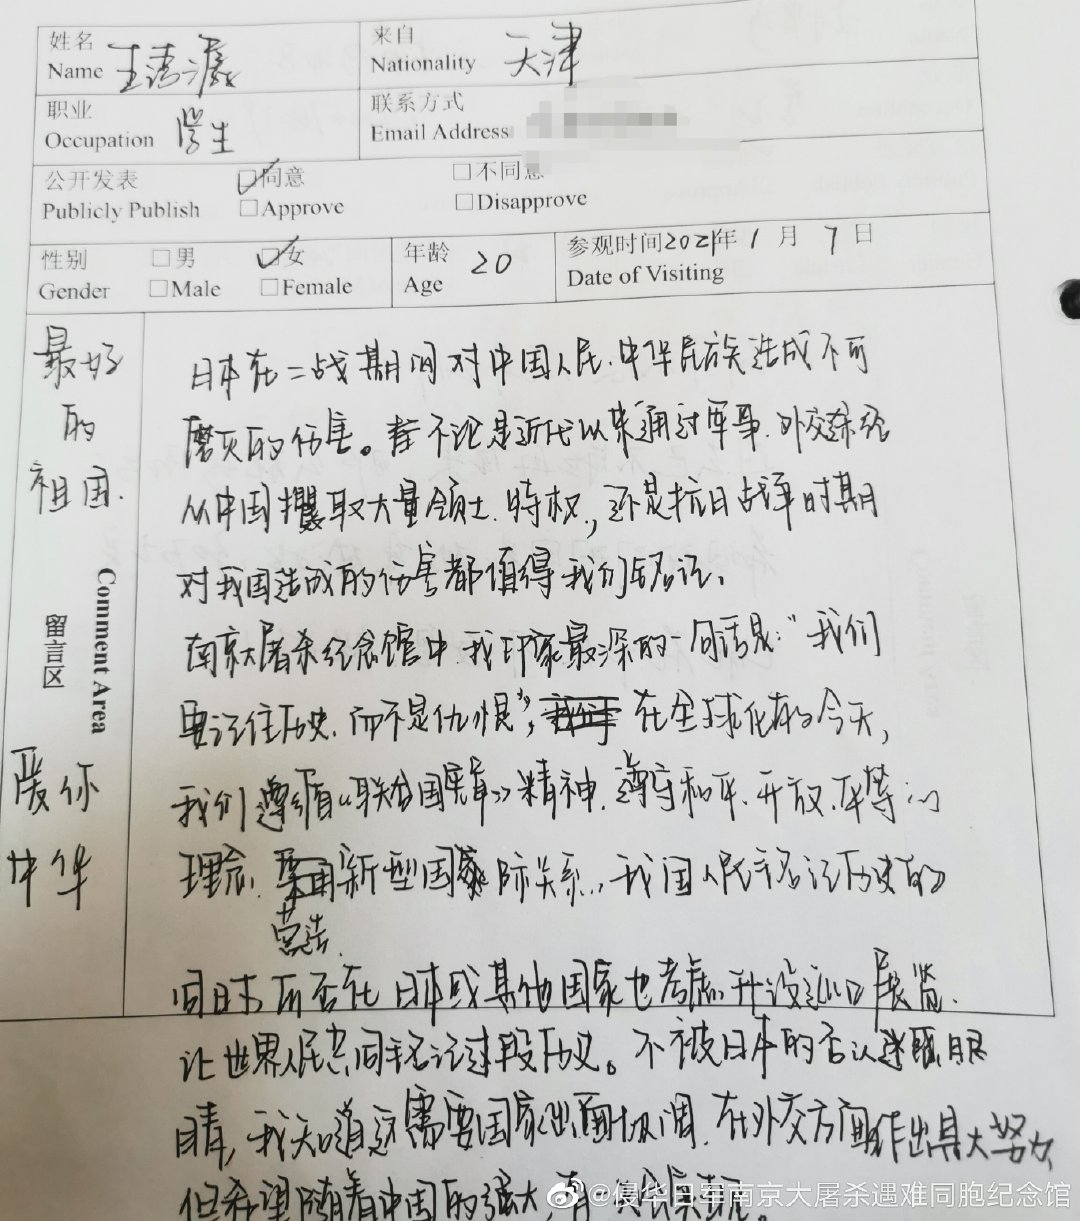 姓名 来自
Name 王清灏 Nationality 天津
职业 学生 联系方式
Occupation Email Address
公开发表 同意 不同意
Publicly Publish Approve Disapprove
性别 男 女 年龄 20 参观时间2021年1月7日
Gender Male Female Age Date of Visiting
最好
的
祖国.
Comment Area
留言区
爱你
中华
日本在二战期间对中国人民.中华民族造成不可
磨灭的伤害。不论是近代以来通过军事.外交途径
从中国攫取大量领土.特权,还是抗日战争时期
对我国造成的伤害都值得我们铭记.
南京大屠杀纪念馆中.我印象最深的一句话是:"我们
要记住历史.而不是仇恨",在全球化的今天,
我们遵循《联合国宪章》精神.遵守和平.开放.平等的
理念.营造新型国际关系,我国人民铭记历史的
同时.可否在日本或其他国家也考虑开设巡回展览.
让世界人民共同铭记这段历史。不被日本的否认迷惑眼
睛,我知道这需要国家出面协调.在外交方面作出具大努力
但希望随着中国的强大,有
@侵华日军南京大屠杀遇难同胞纪念馆